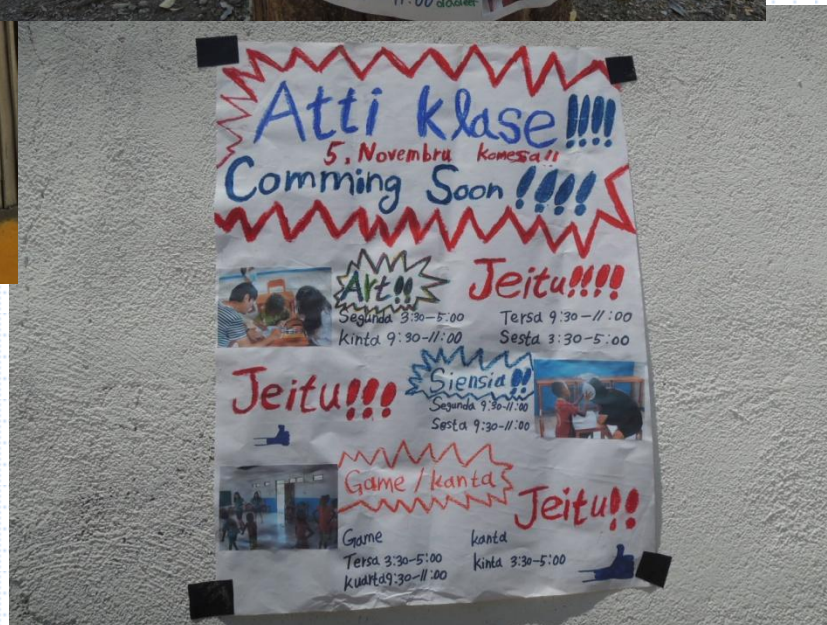 11:00
Atti klase!!!!
5, Novembru komesa!!
Comming Soon!!!!
Art!!
Segunda 3:30-5:00
kinta 9:30-11:00
Jeitu!!!!
Tersa 9:30-11:00
Sesta 3:30-5:00
Jeitu!!!
Siensia!!
Segunda 9:30-11:00
Sesta 9:30-11:00
Game/kanta
Jeitu!!
Game
Tersa 3:30-5:00
kuarta 9:30-11:00
kanta
kinta 3:30-5:00